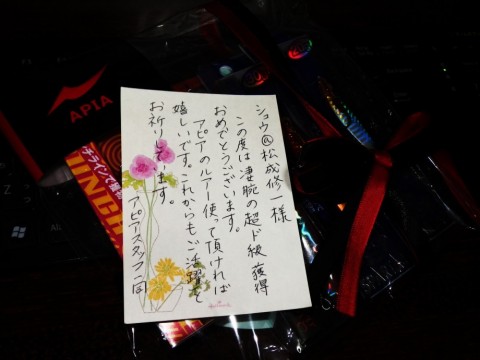 ショウ@松成修一様
この度は凄腕の超ド級獲得
おめでとうございます。
アピアのルアー使って頂ければ
嬉しいです。これからもご活躍を
お祈りしてます。
アピアスタッフ一同
APIA